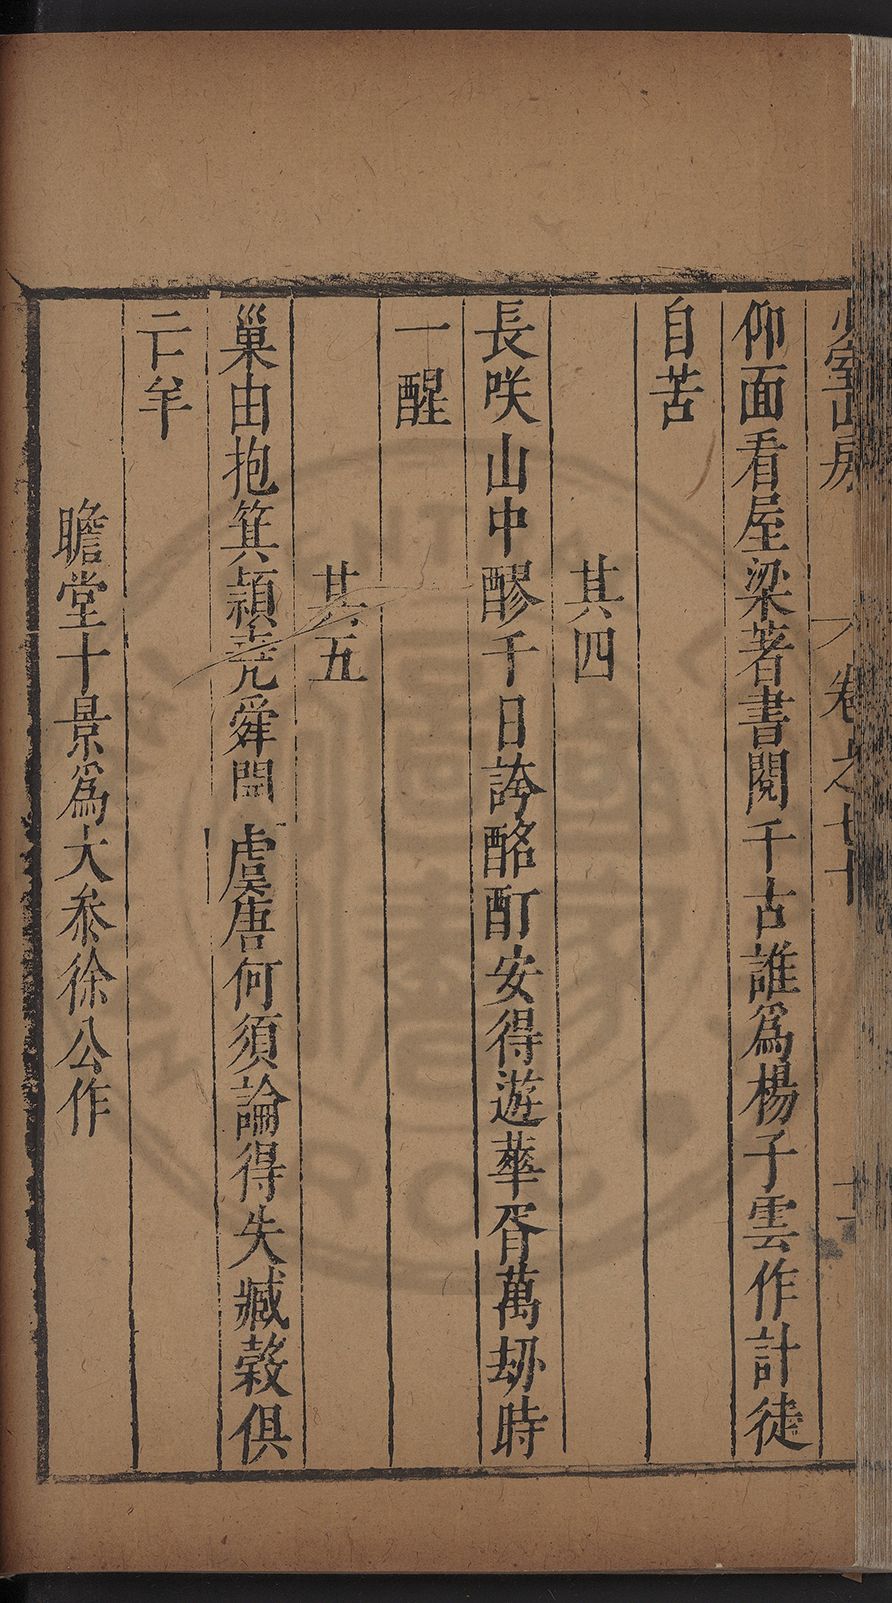 少室山房 卷之七十 十一
仰面看屋梁著書閱千古誰爲楊子雲作計徒
自苦
其四
長咲山中醪千日誇酩酊安得遊華胥萬刼時
一醒
其五
巢由抱箕潁堯舜開虞唐何須論得失臧糓俱
亡羊
瞻堂十景爲大叅徐公作